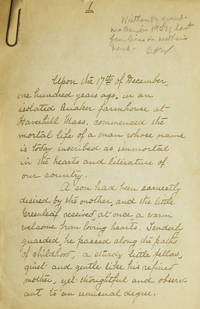 1
Upon the 17th of December,
one hundred years ago, in an
isolated Quaker farmhouse at
Haverhill Mass, commenced the
mortal life of a man whose name
is today inscribed as immortal
in the hearts and literature of
our country.
A son had been earnestly
desired by the mother, and the little
Greenleaf received at once a warm
welcome from loving hearts. Tenderly
guarded, he passed along the paths
of childhood, a sturdy little fellow,
quiet and gentle like his refined
mother, yet thoughtful and observ
ant to an unusual degree.